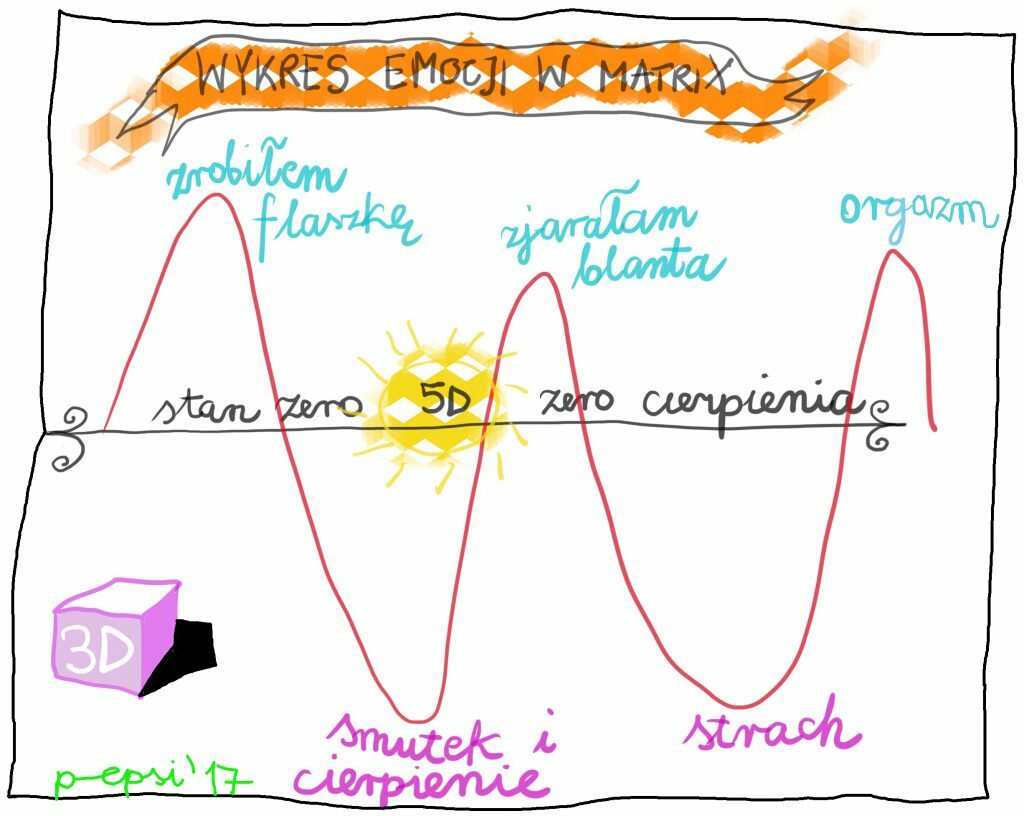 WYKRES EMOCJI W MATRIX
zrobiłem
flaszkę
zjarałam
blanta
orgazm
stan zero 5D zero cierpienia
3D
smutek i
cierpienie
strach
p-epsi'17